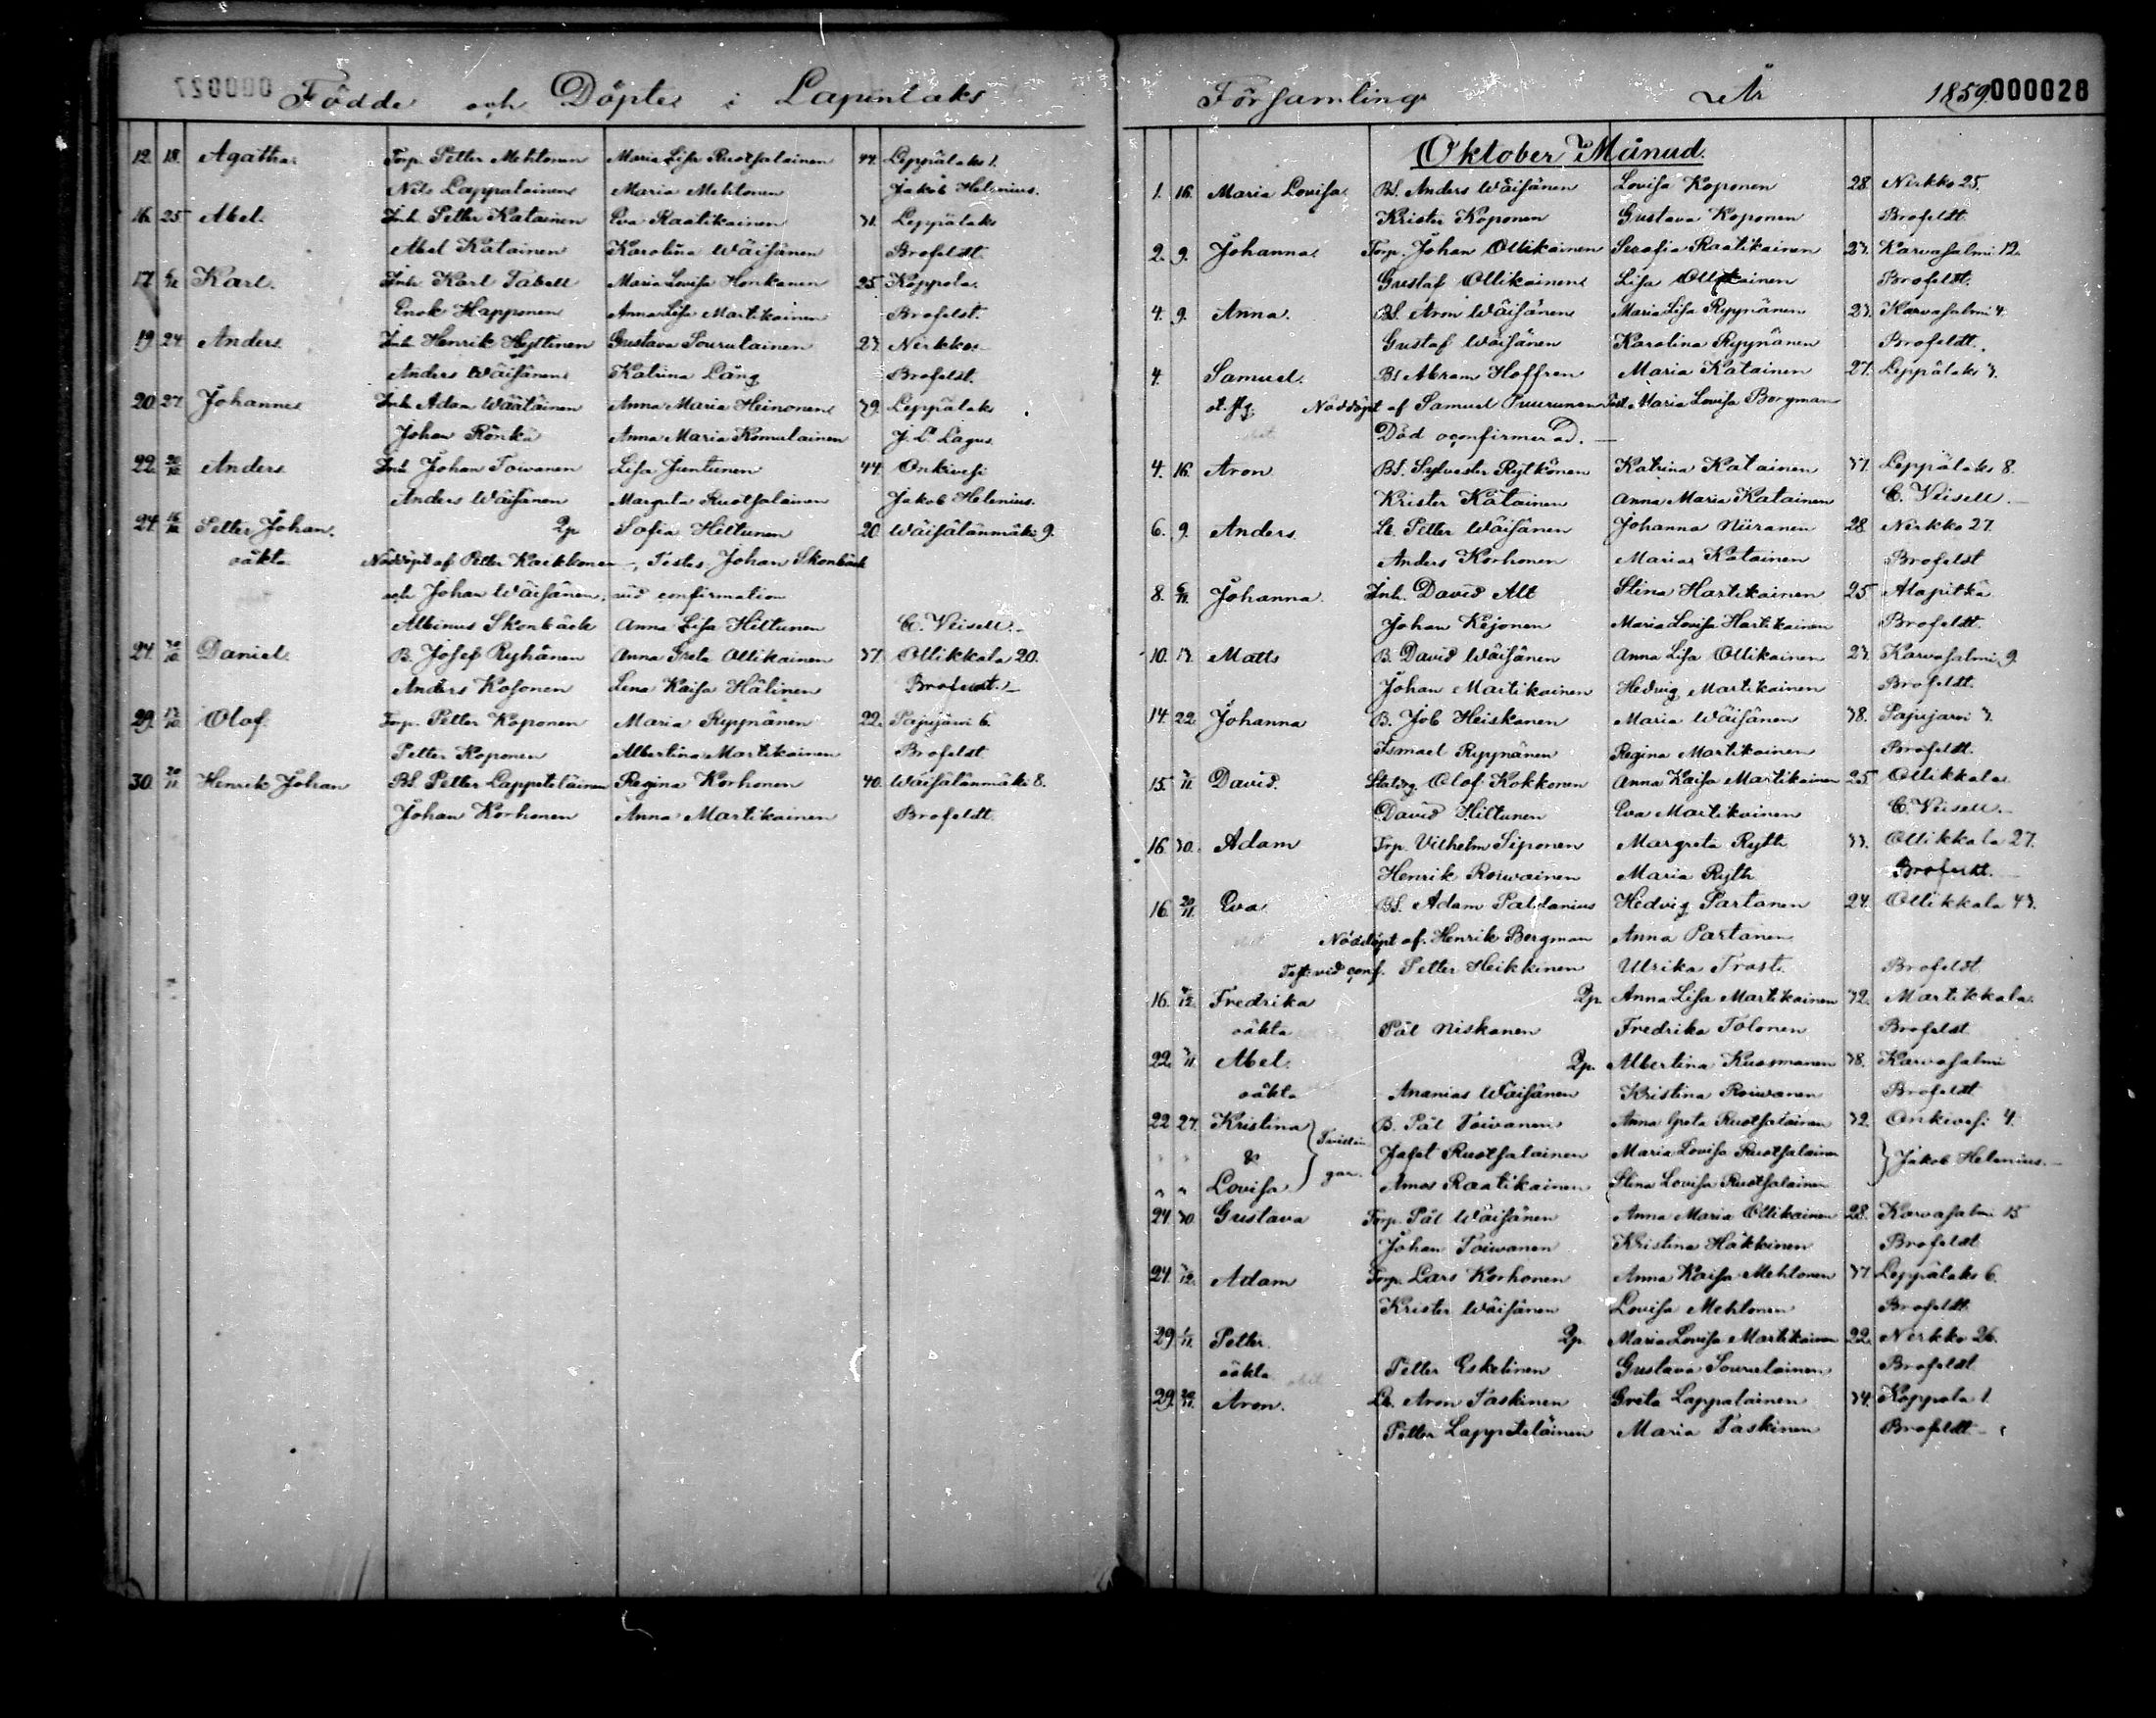 000027
Födde och Döpte i Lapinlaks
12. 18. Agatha Torp. Petter Mehtonen Maria Lisa Ruotsalainen 44. Leppälaks 1.
Nils Lappalainen Maria Mehtonen Jakob Helenius.
16. 25 Abel. Inh. Petter Katainen Eva Raatikainen 31. Leppälaks
Abel Katainen Karolina Wäisänen Brofeldt.
17. Karl. Inh. Karl Tabell Maria Lovisa Honkanen 25. Koppola.
Enok Happonen Anna Lisa Martikainen Brofeldt.
19. 24. Anders Inh. Henrik Hyttinen Gustava Sourulainen 23. Nerkko.
Anders Wäisänen Katrina Läng Brofeldt.
20. 27. Johannes Inh. Adam Wäätäinen Anna Maria Heinonen 39. Leppälaks
Johan Rönkä Anna Maria Komulainen J. L. Lagus
22. 30/10 Anders Inh. Johan Toiwanen Lisa Juntunen 44. Onkivesi
Anders Wäisänen Margeta Ruotsalainen Jakob Helenius.
24. 16/10 Petter Johan. Qp Sofia Hiltunen 20. Wäisälänmäki 9.
oäkta Nöddöpt af Petter Kaikkonen, Testes Johan Skonbäck
och Johan Wäisänen, vid confirmation
Albinus Skonbäck Anna Lisa Hiltunen C. Veisell.
24. 30/10 Daniel. B. Josef Ryhänen Anna Greta Ollikainen 37. Ollikkala 20.
Anders Kosonen Lena Kaisa Hälinen Brofeldt.
29. Olof Torp. Petter Koponen Maria Ryynänen 22. Pajujärvi 6.
Petter Koponen Albertina Martikainen Brofeldt
30. 20/11 Henrik Johan Bs. Petter Lappeteläinen Regina Korhonen 40. Wäisälänmäki 8.
Johan Korhonen Anna Martikainen Brofeldt.
Församling År 1859. 000028
Oktober Månad.
1. 16. Maria Lovisa Bs. Anders Wäisänen Lovisa Koponen 28. Nerkko 25.
Krister Koponen Gustava Koponen Brofeldt
2. 9. Johanna Torp. Johan Ollikainen Serafia Raatikainen 23. Karvasalmi 12.
Gustaf Ollikainen Lisa Ollikainen Brofeldt.
4. 9. Anna. Bs. Aron Wäisänen Maria Lisa Ryynänen 23. Karvasalmi 4.
Gustaf Wäisänen Karolina Ryynänen Brofeldt.
4. Samuel. Bs Abram Hoffren Maria Katainen 27. Leppälaks 3.
Nöddöpt af Samuel Puurunen Test. Maria Lovisa Borgman
Död oconfirmerad.
4. 16. Aron Bs. Sylvester Rytkönen Katrina Katainen 37. Leppälaks 8.
Krister Katainen Anna Maria Katainen C. Veisell.
6. 9. Anders Petter Wäisänen Johanna Niiranen 28 Nerkko 27
Anders Korhonen Maria Katainen Brofeldt
8. 6/11 Johanna Inh. David Alt Stina Hartikainen 25 Alapitkä
Johan Kejonen Maria Lovisa Hartikainen Brofeldt.
10. 13. Matts B. David Wäisänen Anna Lisa Ollikainen 23. Karvasalmi 9.
Johan Martikainen Hedvig Martikainen Brofeldt.
14. 22 Johanna B. Job Heiskanen Maria Wäisänen 38. Pajujärvi 3.
Ismael Ryynänen Regina Martikainen Brofeldt.
15. David. Staldrg. Olof Kokkonen Anna Kaisa Martikainen 25 Ollikkala
David Hiltunen Eva Martikainen C. Veisell.
16. 30. Adam Torp. Vilhelm Siponen Margreta Ryth 33. Ollikkala 27.
Henrik Roiwainen Maria Ryth Brofeldt.
16. 20/11 Eva Bs. Adam Paldanius Hedvig Partanen 24. Ollikkala 43.
Nöddöpt af Henrik Bergman Anna Partanen
Test. vid conf. Petter Heikkinen Ulrika Trast Brofeldt
16. Fredrika Qp. Anna Lisa Martikainen 32. Martikkala.
oäkta Pål Niskanen Fredrika Tolonen Brofeldt
22. Abel. Qp. Albertina Kuosmanen 38. Karvasalmi
oäkta Ananias Wäisänen Kristina Roiwanen Brofeldt
22 27. Kristina B. Pål Toiwanen Anna Greta Ruotsalainen 32. Onkivesi 4.
" " & Tvillin- Jafet Ruotsalainen Maria Lovisa Ruotsalainen Jakob Helenius.
" " Lovisa gar. Amos Raatikainen Stina Lovisa Ruotsalainen
24. 30. Gustava Torp. Pål Wäisänen Anna Maria Ollikainen 28. Karvasalmi 15
Johan Toiwanen Kristina Häkkinen Brofeldt
24. Adam Torp. Lars Korhonen Anna Kaisa Mehtonen 37 Leppälaks 6.
Krister Wäisänen Lovisa Mehtonen Brofeldt
29 Petter. Qp. Maria Lovisa Martikainen 22. Nerkko 26.
oäkta Petter Eskelinen Gustava Sourulainen Brofeldt
29. Aron. Aron Paskinen Greta Lappalainen 34. Koppola 1.
Petter Lappeteläinen Maria Paskinen Brofeldt